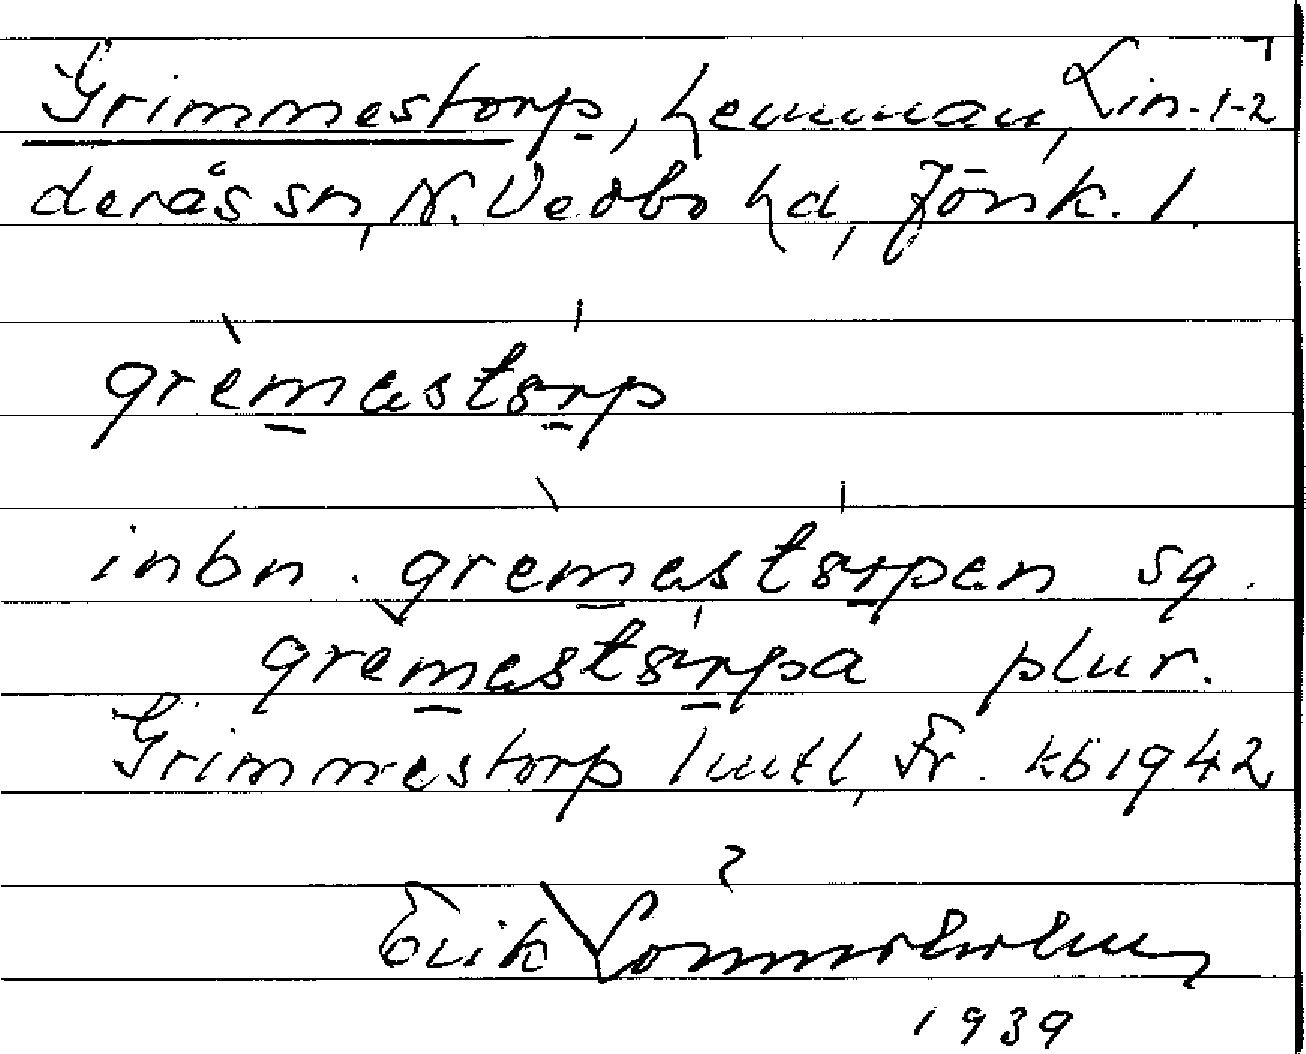 Grimmestorp, hemman, Lin-1-2
derås sn, N. Vedbo hd, Jönk. l.
gremestorp
inbn. gremestorpen sg.
gremestorpa plur.
Grimmestorp 1 mtl, Fr. kb 1942
Erik
1939